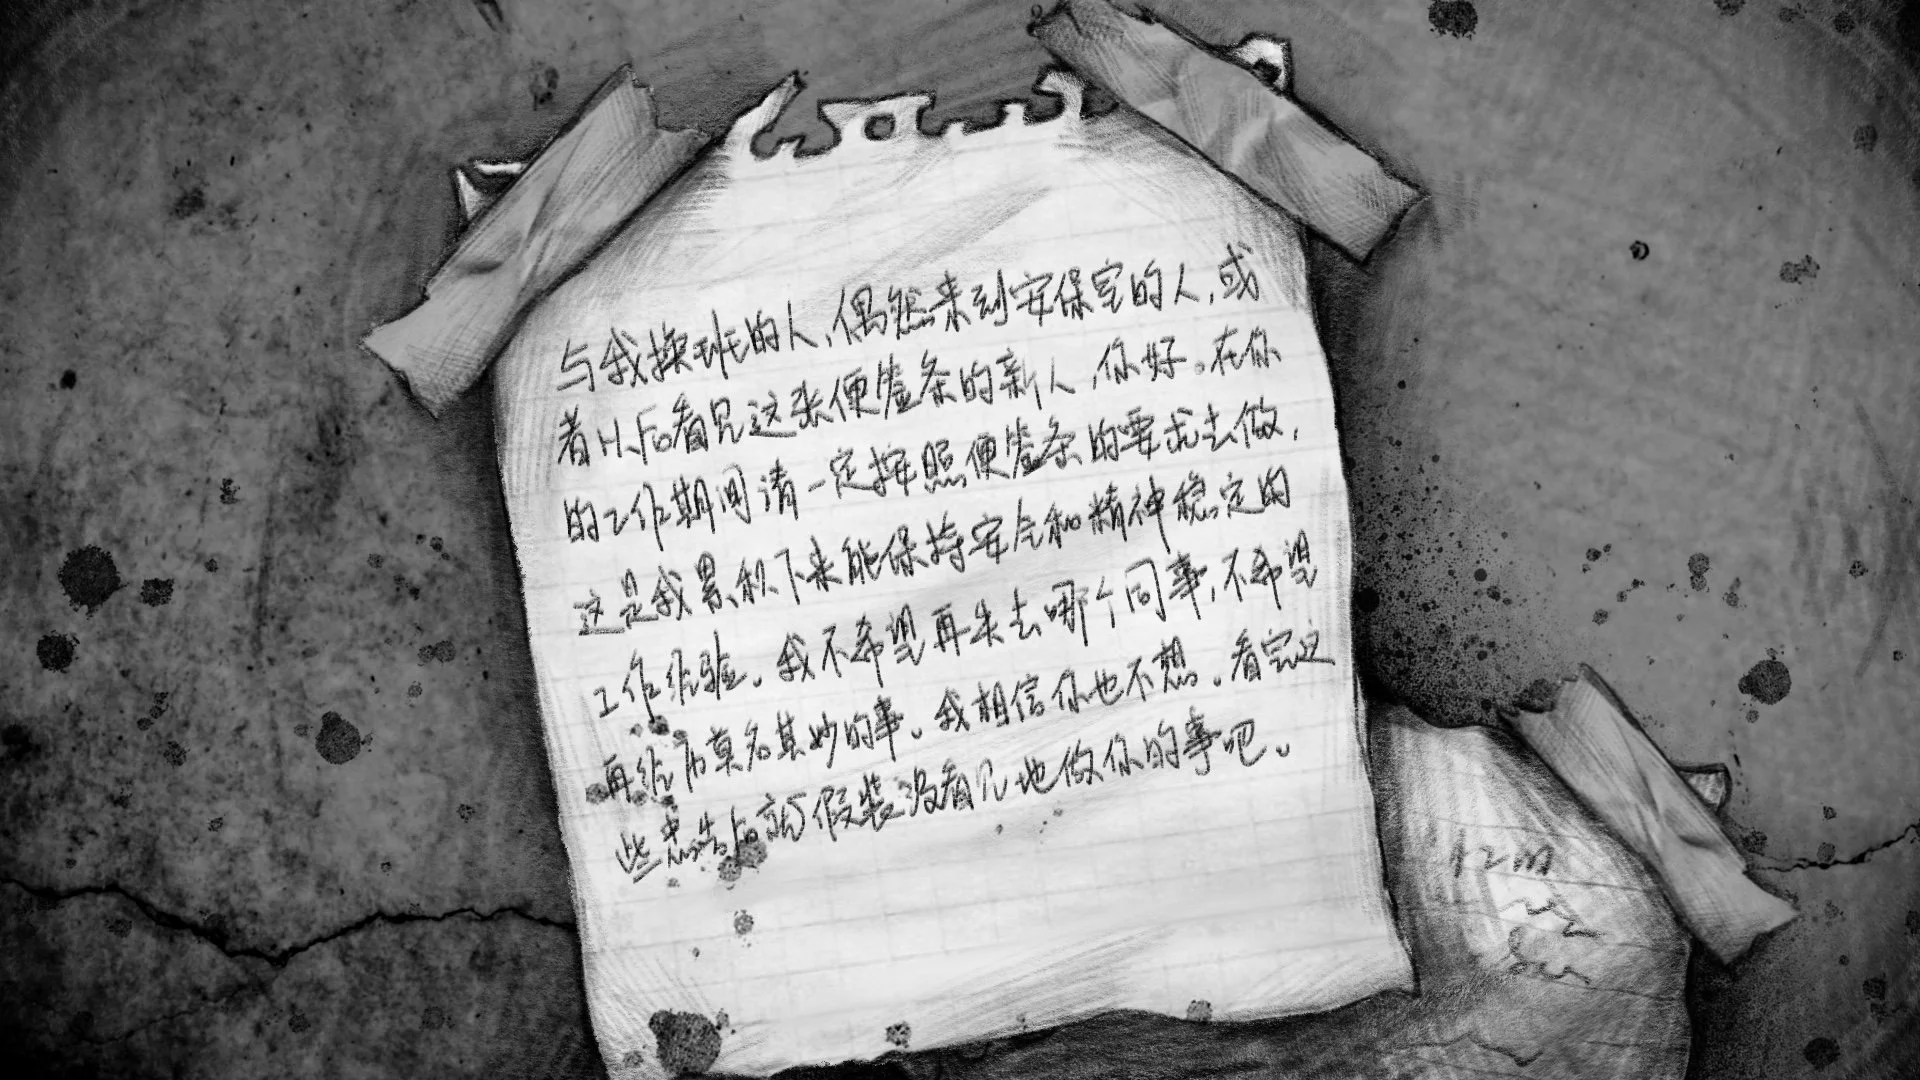 与我换班的人,偶然来到安保室的人,或
者以后看见这张便签条的新人,你好。在你
的工作期间请一定按照便签条的要求去做,
这是我累积下来能保持安全和精神稳定的
工作经验。我不希望再失去哪个同事,不希望
再经历莫名其妙的事。我相信你也不想。看完这
些忠告后就假装没看见地做你的事吧。